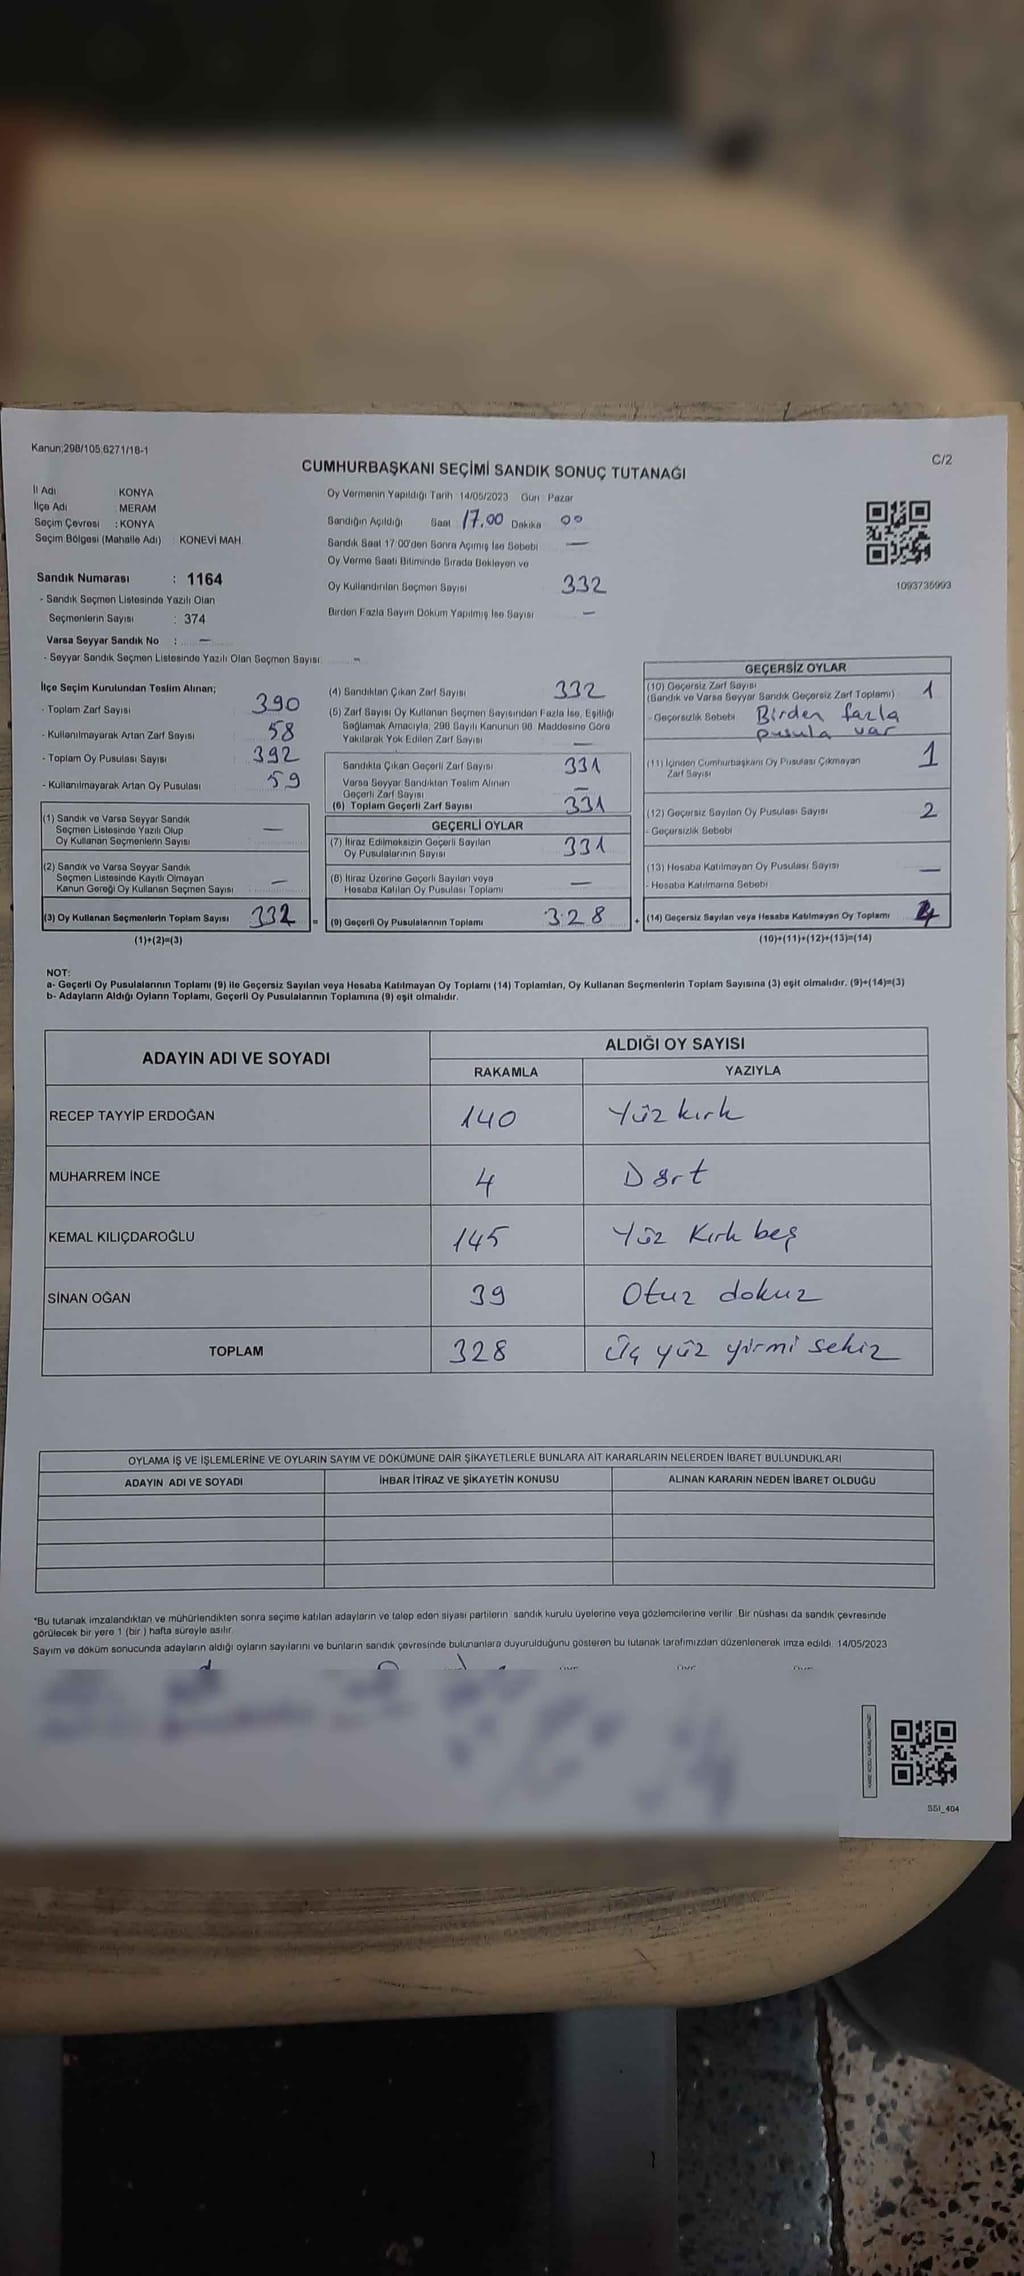 Kanun;298/105,6271/18-1
C/2
CUMHURBAŞKANI SEÇİMİ SANDIK SONUÇ TUTANAĞI
İl Adı : KONYA
İlçe Adı : MERAM
Seçim Çevresi : KONYA
Seçim Bölgesi (Mahalle Adı) : KONEVİ MAH.
Sandık Numarası : 1164
- Sandık Seçmen Listesinde Yazılı Olan
Seçmenlerin Sayısı : 374
Varsa Seyyar Sandık No : —
- Seyyar Sandık Seçmen Listesinde Yazılı Olan Seçmen Sayısı: –
Oy Vermenin Yapıldığı Tarih :14/05/2023 Gün : Pazar
Sandığın Açıldığı Saat 17.00 Dakika 00
Sandık Saat 17:00'den Sonra Açılmış İse Sebebi —
Oy Verme Saati Bitiminde Sırada Bekleyen ve
Oy Kullandırılan Seçmen Sayısı 332
Birden Fazla Sayım Döküm Yapılmış İse Sayısı –
1093735993
İlçe Seçim Kurulundan Teslim Alınan;
- Toplam Zarf Sayısı 390
- Kullanılmayarak Artan Zarf Sayısı 58
- Toplam Oy Pusulası Sayısı 392
- Kullanılmayarak Artan Oy Pusulası 59
(1) Sandık ve Varsa Seyyar Sandık
Seçmen Listesinde Yazılı Olup
Oy Kullanan Seçmenlerin Sayısı —
(2) Sandık ve Varsa Seyyar Sandık
Seçmen Listesinde Kayıtlı Olmayan
Kanun Gereği Oy Kullanan Seçmen Sayısı –
(3) Oy Kullanan Seçmenlerin Toplam Sayısı 332 =
(1)+(2)=(3)
(4) Sandıktan Çıkan Zarf Sayısı 332
(5) Zarf Sayısı Oy Kullanan Seçmen Sayısından Fazla İse, Eşitliği
Sağlamak Amacıyla, 298 Sayılı Kanunun 98. Maddesine Göre
Yakılarak Yok Edilen Zarf Sayısı —
Sandıkta Çıkan Geçerli Zarf Sayısı 331
Varsa Seyyar Sandıktan Teslim Alınan
Geçerli Zarf Sayısı –
(6) Toplam Geçerli Zarf Sayısı 331
GEÇERLİ OYLAR
(7) İtiraz Edilmeksizin Geçerli Sayılan
Oy Pusulalarının Sayısı 331
(8) İtiraz Üzerine Geçerli Sayılan veya
Hesaba Katılan Oy Pusulası Toplamı —
(9) Geçerli Oy Pusulalarının Toplamı 328 +
GEÇERSİZ OYLAR
(10) Geçersiz Zarf Sayısı 1
(Sandık ve Varsa Seyyar Sandık Geçersiz Zarf Toplamı)
- Geçersizlik Sebebi Birden fazla
pusula var
(11) İçinden Cumhurbaşkanı Oy Pusulası Çıkmayan 1
Zarf Sayısı
(12) Geçersiz Sayılan Oy Pusulası Sayısı 2
- Geçersizlik Sebebi
(13) Hesaba Katılmayan Oy Pusulası Sayısı —
- Hesaba Katılmama Sebebi
(14) Geçersiz Sayılan veya Hesaba Katılmayan Oy Toplamı 4
(10)+(11)+(12)+(13)=(14)
NOT:
a- Geçerli Oy Pusulalarının Toplamı (9) ile Geçersiz Sayılan veya Hesaba Katılmayan Oy Toplamı (14) Toplamları, Oy Kullanan Seçmenlerin Toplam Sayısına (3) eşit olmalıdır. (9)+(14)=(3)
b- Adayların Aldığı Oyların Toplamı, Geçerli Oy Pusulalarının Toplamına (9) eşit olmalıdır.
ADAYIN ADI VE SOYADI ALDIĞI OY SAYISI
RAKAMLA YAZIYLA
RECEP TAYYİP ERDOĞAN 140 Yüz kırk
MUHARREM İNCE 4 Dört
KEMAL KILIÇDAROĞLU 145 Yüz Kırk beş
SİNAN OĞAN 39 Otuz dokuz
TOPLAM 328 Üç yüz yirmi sekiz
OYLAMA İŞ VE İŞLEMLERİNE VE OYLARIN SAYIM VE DÖKÜMÜNE DAİR ŞİKAYETLERLE BUNLARA AİT KARARLARIN NELERDEN İBARET BULUNDUKLARI
ADAYIN ADI VE SOYADI İHBAR İTİRAZ VE ŞİKAYETİN KONUSU ALINAN KARARIN NEDEN İBARET OLDUĞU
*Bu tutanak imzalandıktan ve mühürlendikten sonra seçime katılan adayların ve talep eden siyasi partilerin sandık kurulu üyelerine veya gözlemcilerine verilir. Bir nüshası da sandık çevresinde
görülecek bir yere 1 (bir ) hafta süreyle asılır.
Sayım ve döküm sonucunda adayların aldığı oyların sayılarını ve bunların sandık çevresinde bulunanlara duyurulduğunu gösteren bu tutanak tarafımızdan düzenlenerek imza edildi. 14/05/2023
SSI_404